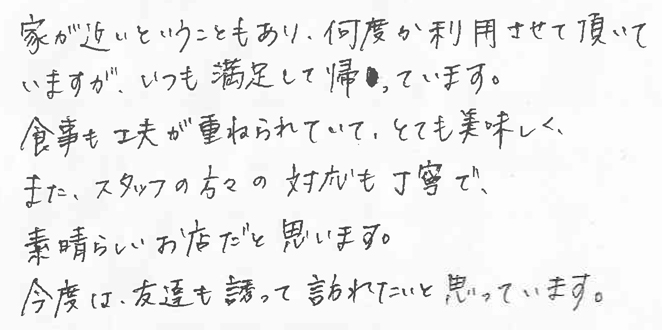 家が近いということもあり、何度か利用させて頂いて
いますが、いつも満足して帰っています。
食事も工夫が重ねられていて、とても美味しく、
また、スタッフの方々の対応も丁寧で、
素晴らしいお店だと思います。
今度は、友達も誘って訪れたいと思っています。